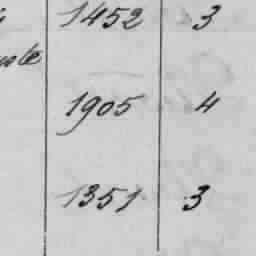 1452 3
1905 4
1351 3